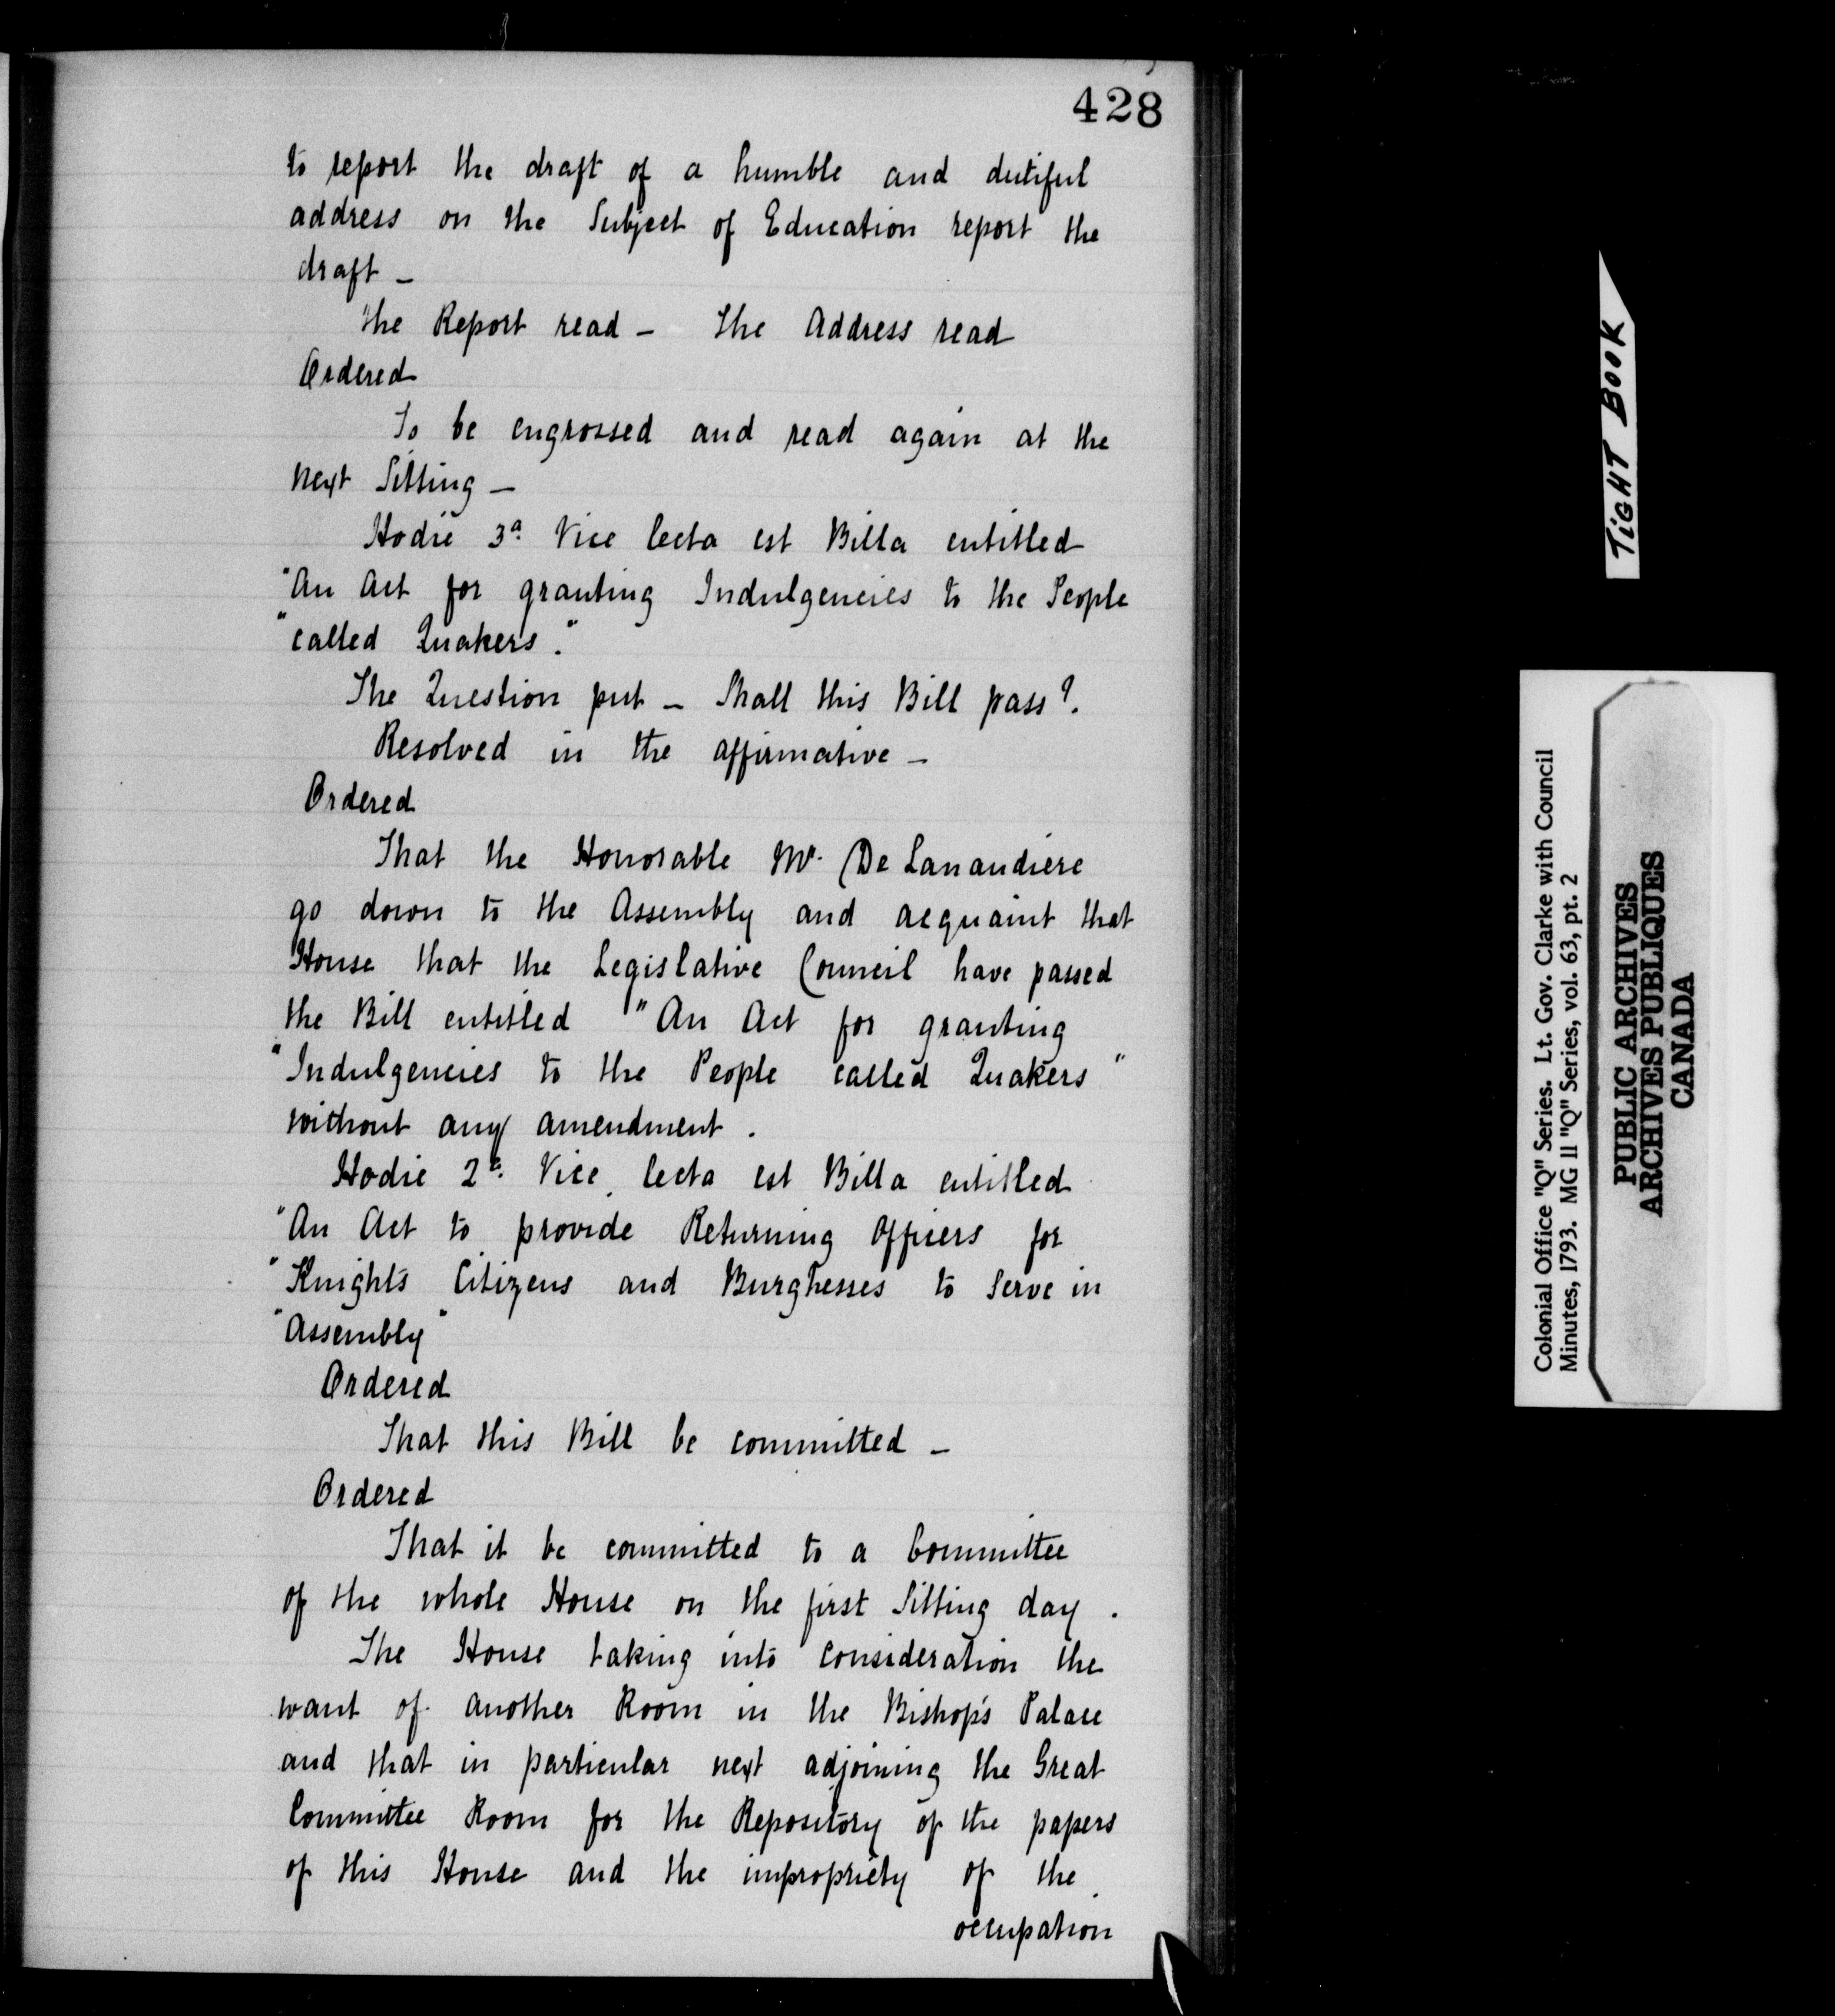 428
to report the draft of a humble and dutiful
address on the Subject of Education report the
draft –
the Report read – the Address read
Ordered
To be engrossed and read again at the
next Sitting –
Hodie 3ª Vice lecta est Billa entitled
"An Act for granting Indulgencies to the People
"called Quakers."
The Question put – Shall this Bill pass?
Resolved in the affirmative –
Ordered
That the Honorable Mr. De Lanaudiere
go down to the Assembly and acquaint that
House that the Legislative Council have passed
the Bill entitled "An Act for granting
"Indulgencies to the People called Quakers"
without any amendment.
Hodie 2ª Vice lecta est Billa entitled
"An Act to provide Returning Officers for
"Knights Citizens and Burghesses to Serve in
"Assembly"
Ordered
That this Bill be committed –
Ordered
That it be committed to a Committee
of the whole House on the first Sitting day.
The House taking into consideration the
want of another Room in the Bishop's Palace
and that in particular next adjoining the Great
Committee Room for the Repository of the papers
of this House and the impropriety of the
occupation
TIGHT BOOK
Colonial Office "Q" Series. Lt. Gov. Clarke with Council
Minutes, 1793. MG 11 "Q" Series, vol. 63, pt. 2
PUBLIC ARCHIVES
ARCHIVES PUBLIQUES
CANADA